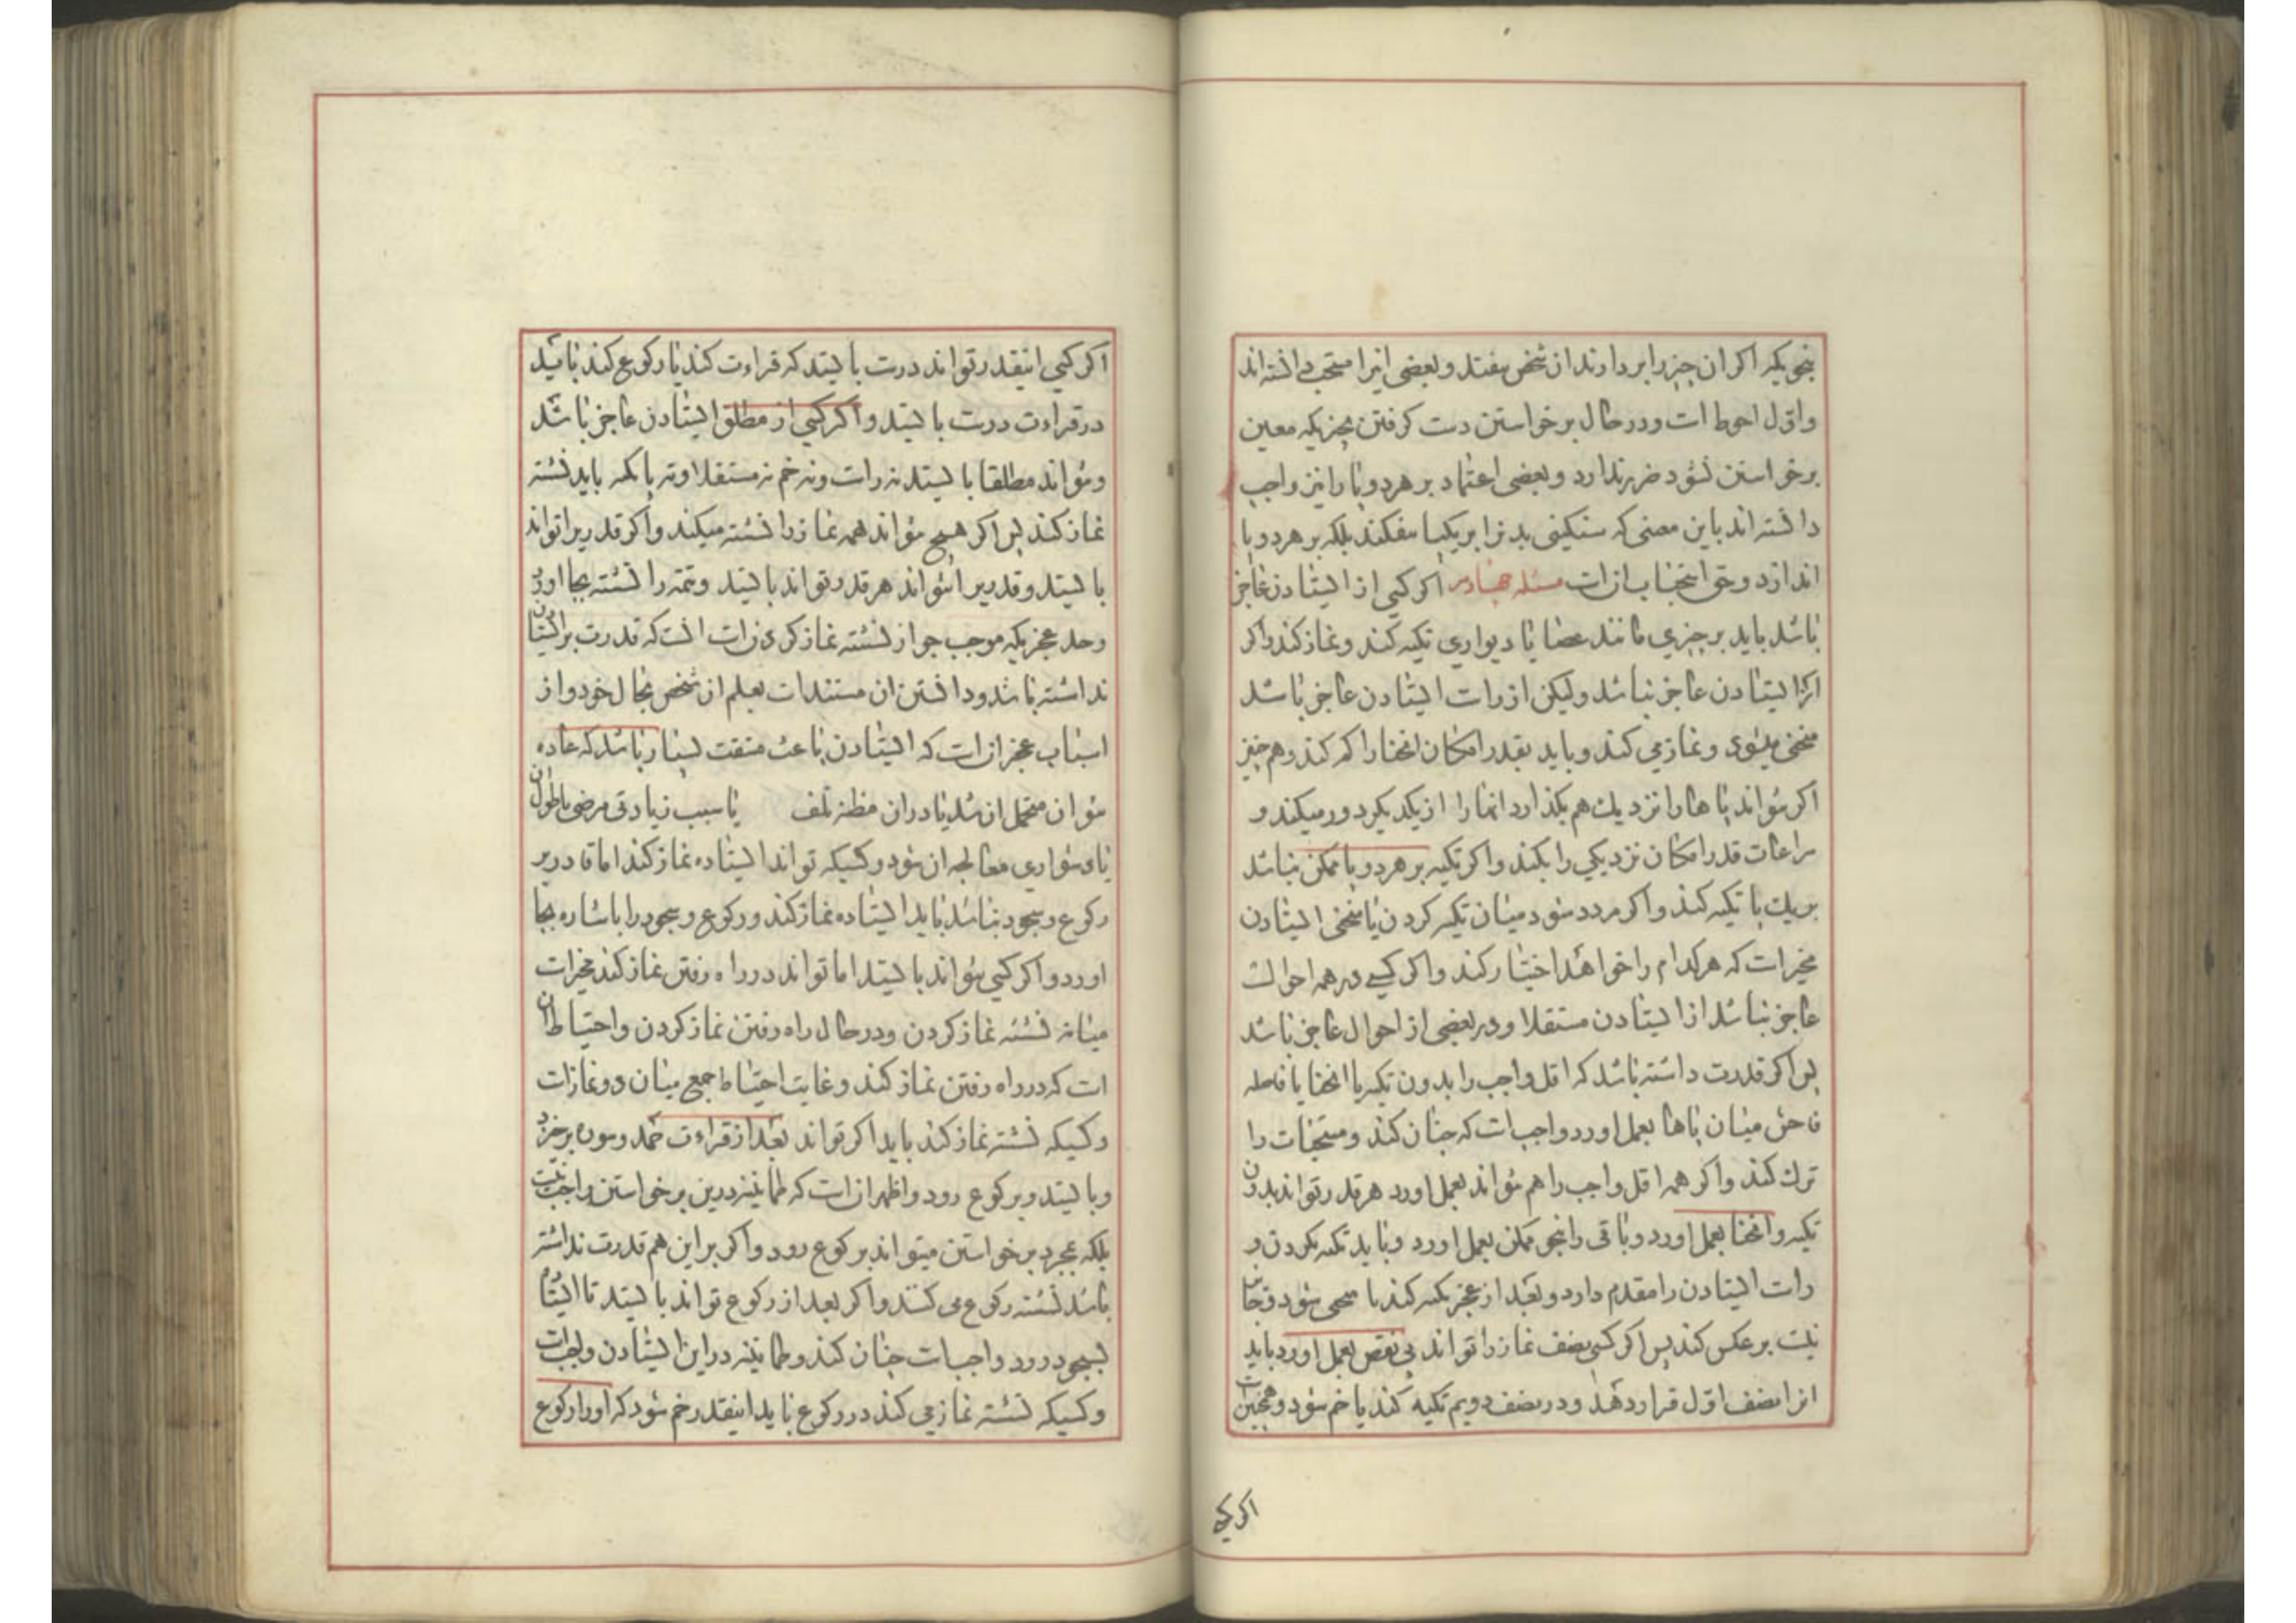 بنحویکه اکر ان چیز را بردارند ان شخص بیفتد و بعضی انرا مستحب دانسته اند
و اول احوط است و در حال برخواستن دست کرفتن بچیزیکه معین
برخواستن نشود ضرر ندارد و بعضی اعتماد بر هر دو پا را نیز واجب
دانسته اند باین معنی که سنکینی بدنرا بر یکپا نیفکند بلکه بر هر دو پا
اندازد و حق استحباب انست مسئله چهارم اکر کسی از ایستادن عاجز
باشد باید بر چیزی مانند عصا یا دیواری تکیه کند و نماز کند و اکر
از ایستادن عاجز نباشد ولیکن از راست ایستادن عاجز باشد
منحنی میشود و نماز می کند و باید بقدر امکان انحنا را کم کند و هم چنین
اکر نتواند پاها را نزدیك هم بکذارد انها را از یکدیکر دور میکند و
مراعات قدر امکان نزدیکی را بکند و اکر تکیه بر هر دو پا ممکن نباشد
بر یك پا تکیه کند و اکر مردد شود میان تکیه کردن یا منحنی ایستادن
مخیر است که هر کدام را خواهد اختیار کند و اکر کسی در همه احوالت
عاجز نباشد از ایستادن مستقلا و در بعضی از احوال عاجز باشد
پس اکر قدرت داشته باشد که اقل واجب را بدون تکیه یا انحنا یا فاصله
فاحش میان پاها بعمل اورد واجب است که چنان کند و مستحبات را
ترك کند و اکر همه اقل واجب را هم نتواند بعمل اورد هر قدر تواند بدون
تکیه و انحنا بعمل اورد و باقی را بنحو ممکن بعمل اورد و باید تکیه نکردن و
راست ایستادن را مقدم دارد و بعد از عجز تکیه کند یا منحنی شود و جایز
نیست بر عکس کند پس اکر کسی نصف نماز را تواند بی نقص بعمل اورد باید
انرا نصف اول قرار دهد و در نصف دویم تکیه کند یا خم شود و همچنین است
اکر کسی
اکر کسی اینقدر تواند درست بایستد که قراءت کند یا رکوع کند باید
در قراءت درست بایستد و اکر کسی از مطلق ایستادن عاجز باشد
و نتواند مطلقا بایستد نه راست و نه خم نه مستقلا و نه باتکیه باید نشسته
نماز کند پس اکر هیچ نتواند همه نماز را نشسته میکند و اکر قدریرا تواند
بایستد و قدریرا نتواند هر قدر تواند بایستد و تتمه را نشسته بجا اورد
و حد عجزیکه موجب جواز نشسته نماز کردن است انست که قدرت بر ایستادن
نداشته باشد و دانستن ان مستند است بعلم ان شخص بحال خود و از
اسباب عجز ان است که ایستادن باعث مشقت بسیار باشد که عادة
نتوان متحمل ان شد یا در ان مظنه تلف یا سبب زیادتی مرض یا طول ان
یا دشواری معالجه ان شود و کسیکه تواند ایستاده نماز کند اما قادر بر
رکوع و سجود نباشد باید ایستاده نماز کند و رکوع و سجود را باشاره بجا
اورد و اکر کسی نتواند بایستد اما تواند در راه رفتن نماز کند مخیر است
میانه نشسته نماز کردن و در حال راه رفتن نماز کردن و احتیاط ان
است که در راه رفتن نماز کند و غایت احتیاط جمع میان دو نماز است
و کسیکه نشسته نماز کند باید اکر تواند بعد از قراءت حمد و سوره برخیزد
و بایستد و برکوع رود و اظهر ان است که طمانینه در این برخواستن واجب نیست
بلکه بمجرد برخواستن میتواند برکوع رود و اکر بر این هم قدرت نداشته
باشد نشسته رکوع می کند و اکر بعد از رکوع تواند بایستد تا از قیام
بسجود رود واجب است چنان کند و طمانینه در این ایستادن واجب است
و کسیکه نشسته نماز می کند در رکوع باید اینقدر خم شود که اورا رکوع